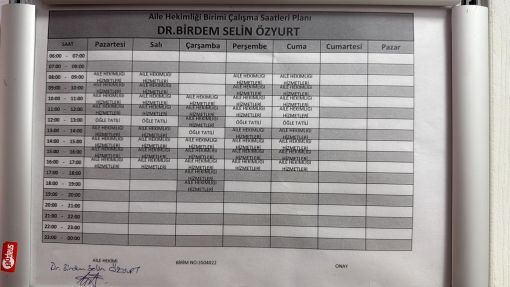 Aile Hekimliği Birimi Çalışma Saatleri Planı
DR.BİRDEM SELİN ÖZYURT
SAAT Pazartesi Salı Çarşamba Perşembe Cuma Cumartesi Pazar
06:00 - 07:00
07:00 - 08:00
08:00 - 09:00 AİLE HEKİMLİĞİ HİZMETLERİ AİLE HEKİMLİĞİ HİZMETLERİ AİLE HEKİMLİĞİ HİZMETLERİ AİLE HEKİMLİĞİ HİZMETLERİ
09:00 - 10:00 AİLE HEKİMLİĞİ HİZMETLERİ AİLE HEKİMLİĞİ HİZMETLERİ AİLE HEKİMLİĞİ HİZMETLERİ AİLE HEKİMLİĞİ HİZMETLERİ
10:00 - 11:00 AİLE HEKİMLİĞİ HİZMETLERİ AİLE HEKİMLİĞİ HİZMETLERİ AİLE HEKİMLİĞİ HİZMETLERİ AİLE HEKİMLİĞİ HİZMETLERİ AİLE HEKİMLİĞİ HİZMETLERİ
11:00 - 12:00 AİLE HEKİMLİĞİ HİZMETLERİ AİLE HEKİMLİĞİ HİZMETLERİ AİLE HEKİMLİĞİ HİZMETLERİ AİLE HEKİMLİĞİ HİZMETLERİ AİLE HEKİMLİĞİ HİZMETLERİ
12:00 - 13:00 ÖĞLE TATİLİ ÖĞLE TATİLİ AİLE HEKİMLİĞİ HİZMETLERİ ÖĞLE TATİLİ ÖĞLE TATİLİ
13:00 - 14:00 AİLE HEKİMLİĞİ HİZMETLERİ AİLE HEKİMLİĞİ HİZMETLERİ ÖĞLE TATİLİ AİLE HEKİMLİĞİ HİZMETLERİ AİLE HEKİMLİĞİ HİZMETLERİ
14:00 - 15:00 AİLE HEKİMLİĞİ HİZMETLERİ AİLE HEKİMLİĞİ HİZMETLERİ AİLE HEKİMLİĞİ HİZMETLERİ AİLE HEKİMLİĞİ HİZMETLERİ AİLE HEKİMLİĞİ HİZMETLERİ
15:00 - 16:00 AİLE HEKİMLİĞİ HİZMETLERİ AİLE HEKİMLİĞİ HİZMETLERİ AİLE HEKİMLİĞİ HİZMETLERİ AİLE HEKİMLİĞİ HİZMETLERİ AİLE HEKİMLİĞİ HİZMETLERİ
16:00 - 17:00 AİLE HEKİMLİĞİ HİZMETLERİ AİLE HEKİMLİĞİ HİZMETLERİ AİLE HEKİMLİĞİ HİZMETLERİ AİLE HEKİMLİĞİ HİZMETLERİ AİLE HEKİMLİĞİ HİZMETLERİ
17:00 - 18:00 AİLE HEKİMLİĞİ HİZMETLERİ
18:00 - 19:00 AİLE HEKİMLİĞİ HİZMETLERİ
19:00 - 20:00
20:00 - 21:00
21:00 - 22:00
22:00 - 23:00
23:00 - 00:00
AİLE HEKİMİ BİRİM NO:3504022 ONAY
Dr. Birdem Selin ÖZYURT